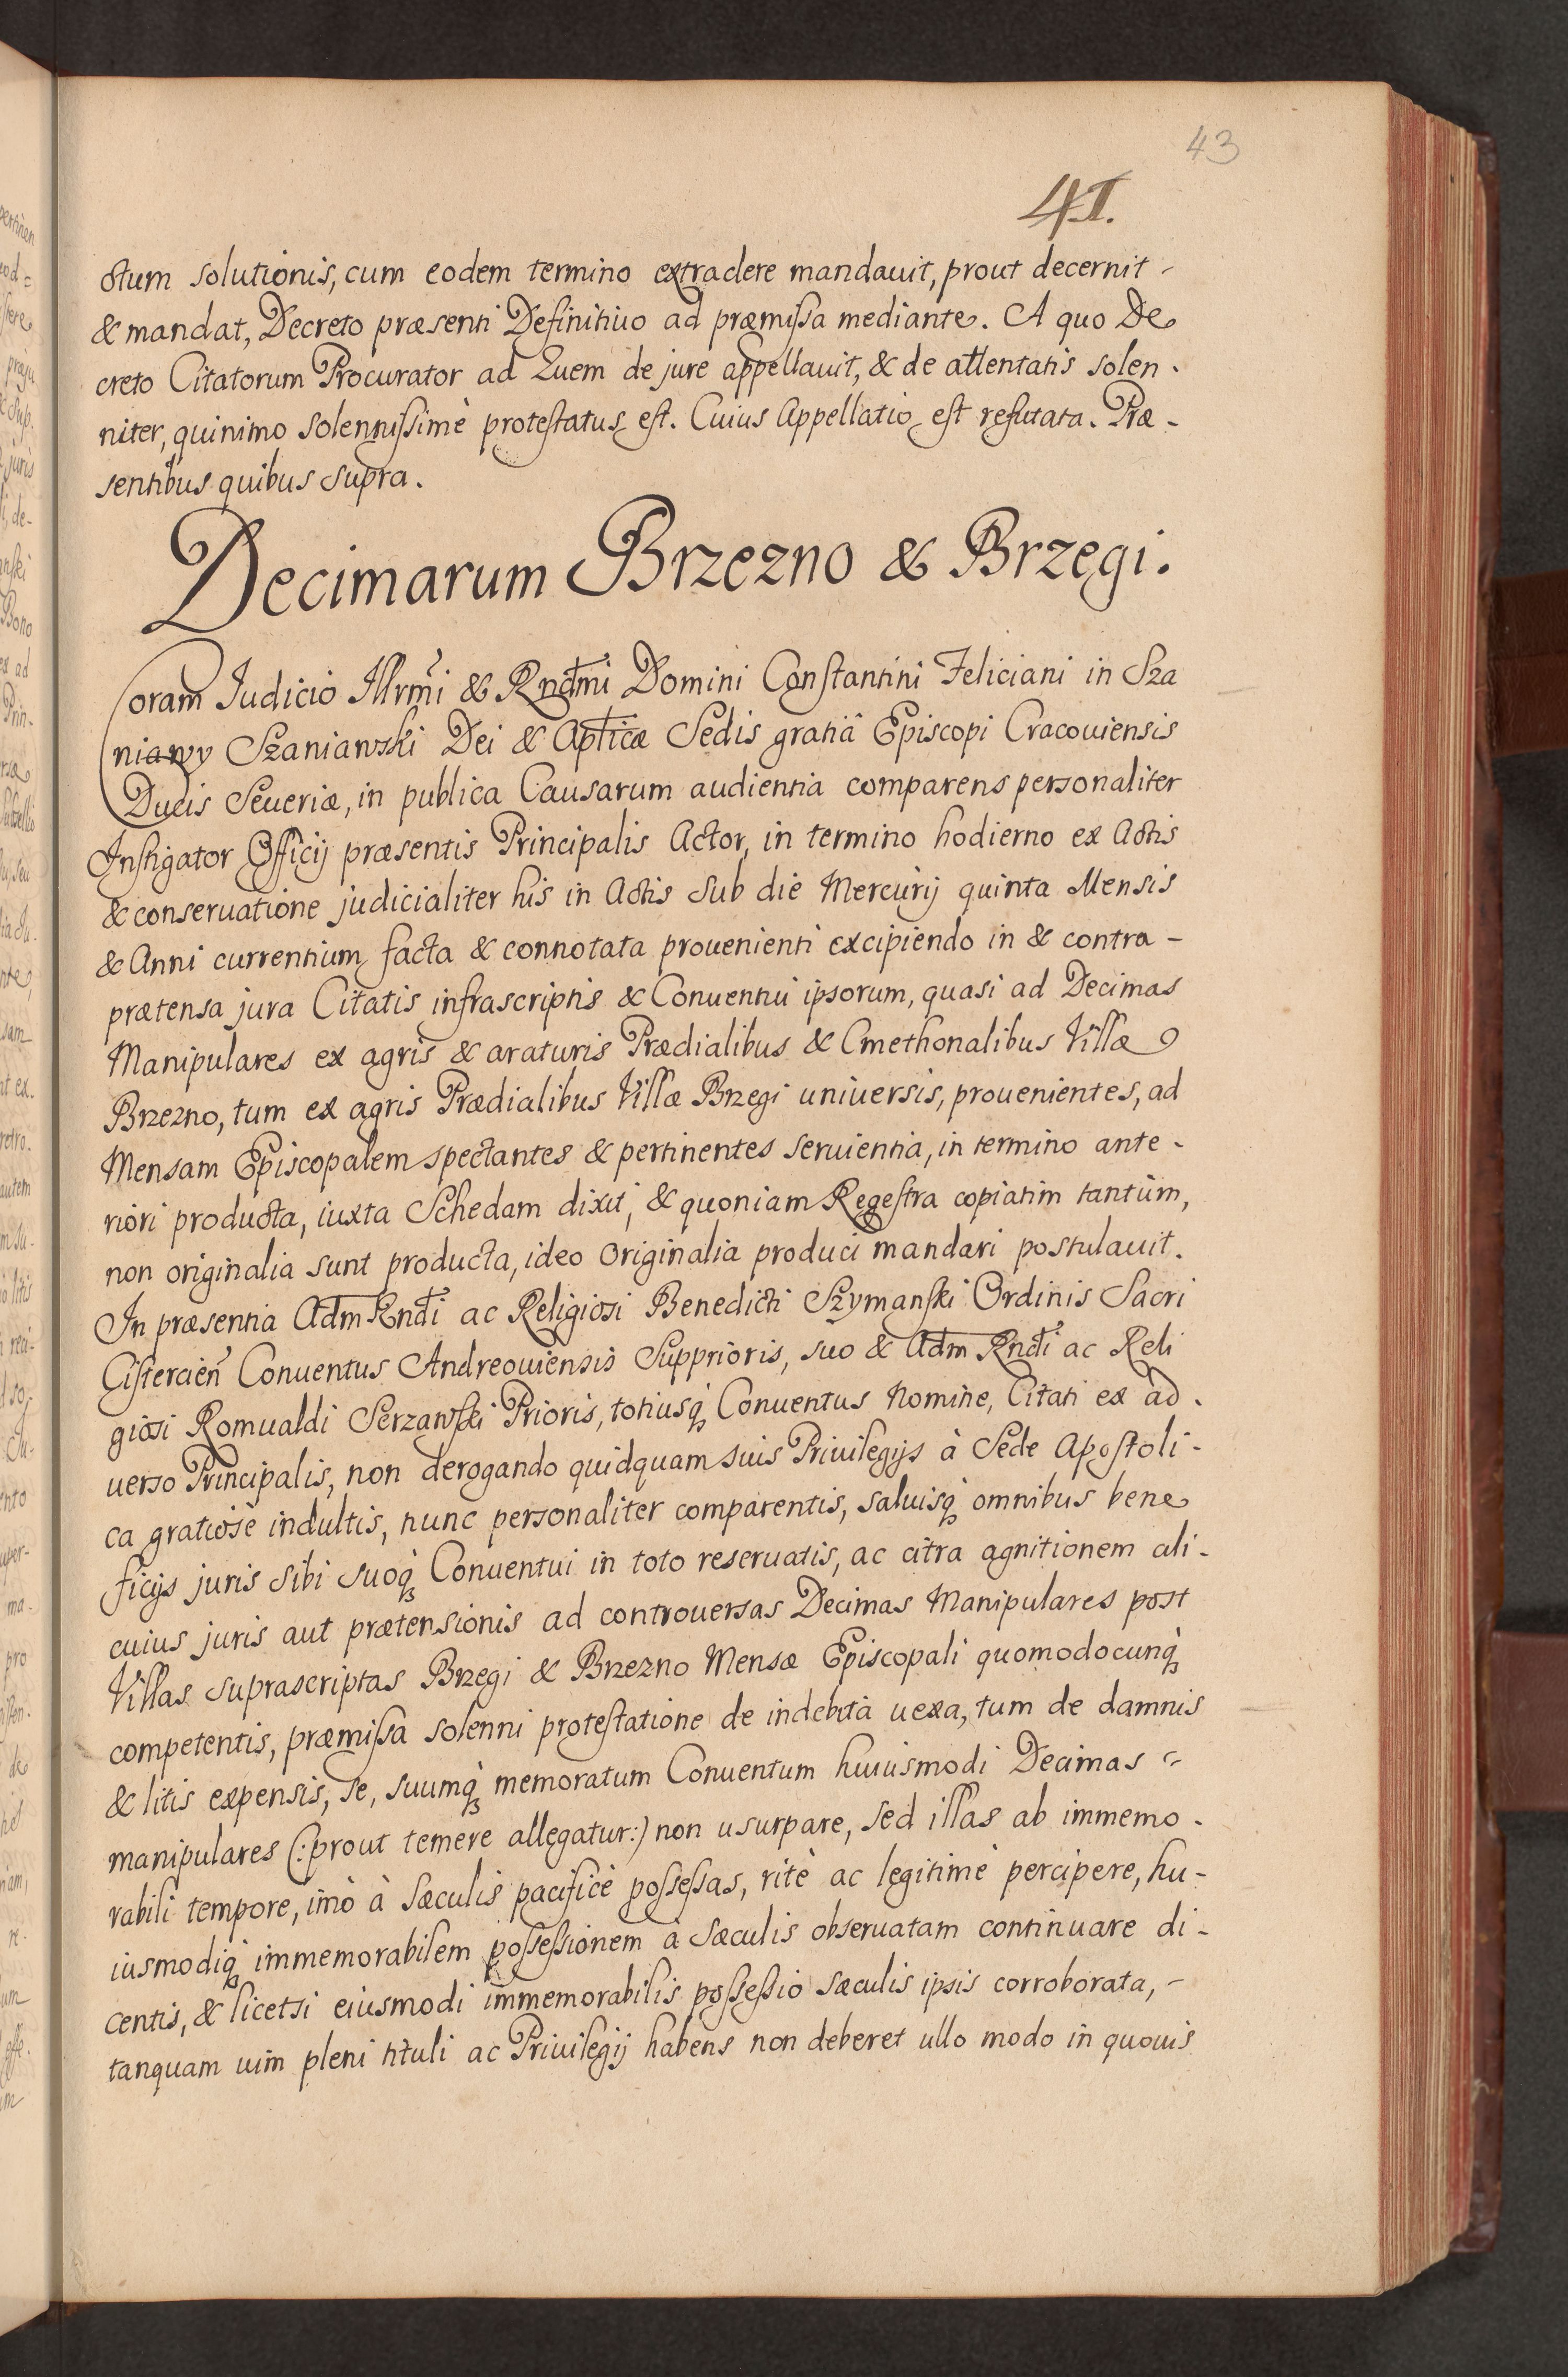 43
41.
ctum solutionis, cum eodem termino extradere mandauit, prout decernit -
& mandat, Decreto præsenti Definitiuo ad præmissa mediante. A quo De
creto Citatorum Procurator ad Quem de jure appellauit, & de attentatis solen -
niter, quinimo solennissimè protestatus est. Cuius Appellatio est refutata. Præ -
sentibus quibus supra.
Decimarum Brzezno & Brzegi.
Coram Judicio Illrmi & Rndmi Domini Constantini Feliciani in Sza
niawy Szaniawski Dei & Aplicæ Sedis gratiâ Episcopi Cracouiensis
Ducis Seueriæ, in publica Causarum audientia comparens personaliter
Instigator Officij præsentis Principalis Actor, in termino hodierno ex Actis
& conseruatione judicialiter his in Actis sub die Mercurij quinta Mensis
& Anni currentium facta & connotata prouenienti excipiendo in & contra -
prætensa jura Citatis infrascriptis & Conuentui ipsorum, quasi ad Decimas
Manipulares ex agris & araturis Prædialibus & Cmethonalibus Villæ
Brzezno, tum ex agris Prædialibus Villæ Brzegi uniuersis, prouenientes, ad
Mensam Episcopalem spectantes & pertinentes seruientia, in termino ante -
riori producta, iuxta Schedam dixit, & quoniam Regestra copiatim tantùm,
non originalia sunt producta, ideo Originalia produci mandari postulauit.
In præsentia Adm Rndi ac Religiosi Benedicti Szymanski Ordinis Sacri
Cistercien̄ Conuentus Andreouiensis Supprioris, suo & Adm Rndi ac Reli
giosi Romualdi Serzawski Prioris, totiusq̀ Conuentus Nomine, Citati ex ad -
uerso Principalis, non derogando quidquam suis Priuilegijs à Sede Apostoli -
ca gratiosè indultis, nunc personaliter comparentis, saluisq̀ omnibus bene
ficijs juris sibi suoq̀ Conuentui in toto reseruatis, ac citra agnitionem ali -
cuius juris aut prætensionis ad controuersas Decimas Manipulares post
Villas suprascriptas Brzegi & Brzezno Mensæ Episcopali quomodocunq̀
competentis, præmissa solenni protestatione de indebita uexa, tum de damnis
& litis expensis, se, suumq̀ memoratum Conuentum huiusmodi Decimas =
manipulares (: prout temere allegatur :) non usurpare, sed illas ab immemo -
rabili tempore, imò à sæculis pacificè possessas, ritè ac legitimè percipere, hu -
iusmodiq̀ immemorabilem possessionem à sæculis obseruatam continuare di -
centis, & licetsi eiusmodi immemorabilis possessio sæculis ipsis corroborata, -
tanquam uim pleni tituli ac Priuilegij habens non deberet ullo modo in quouis